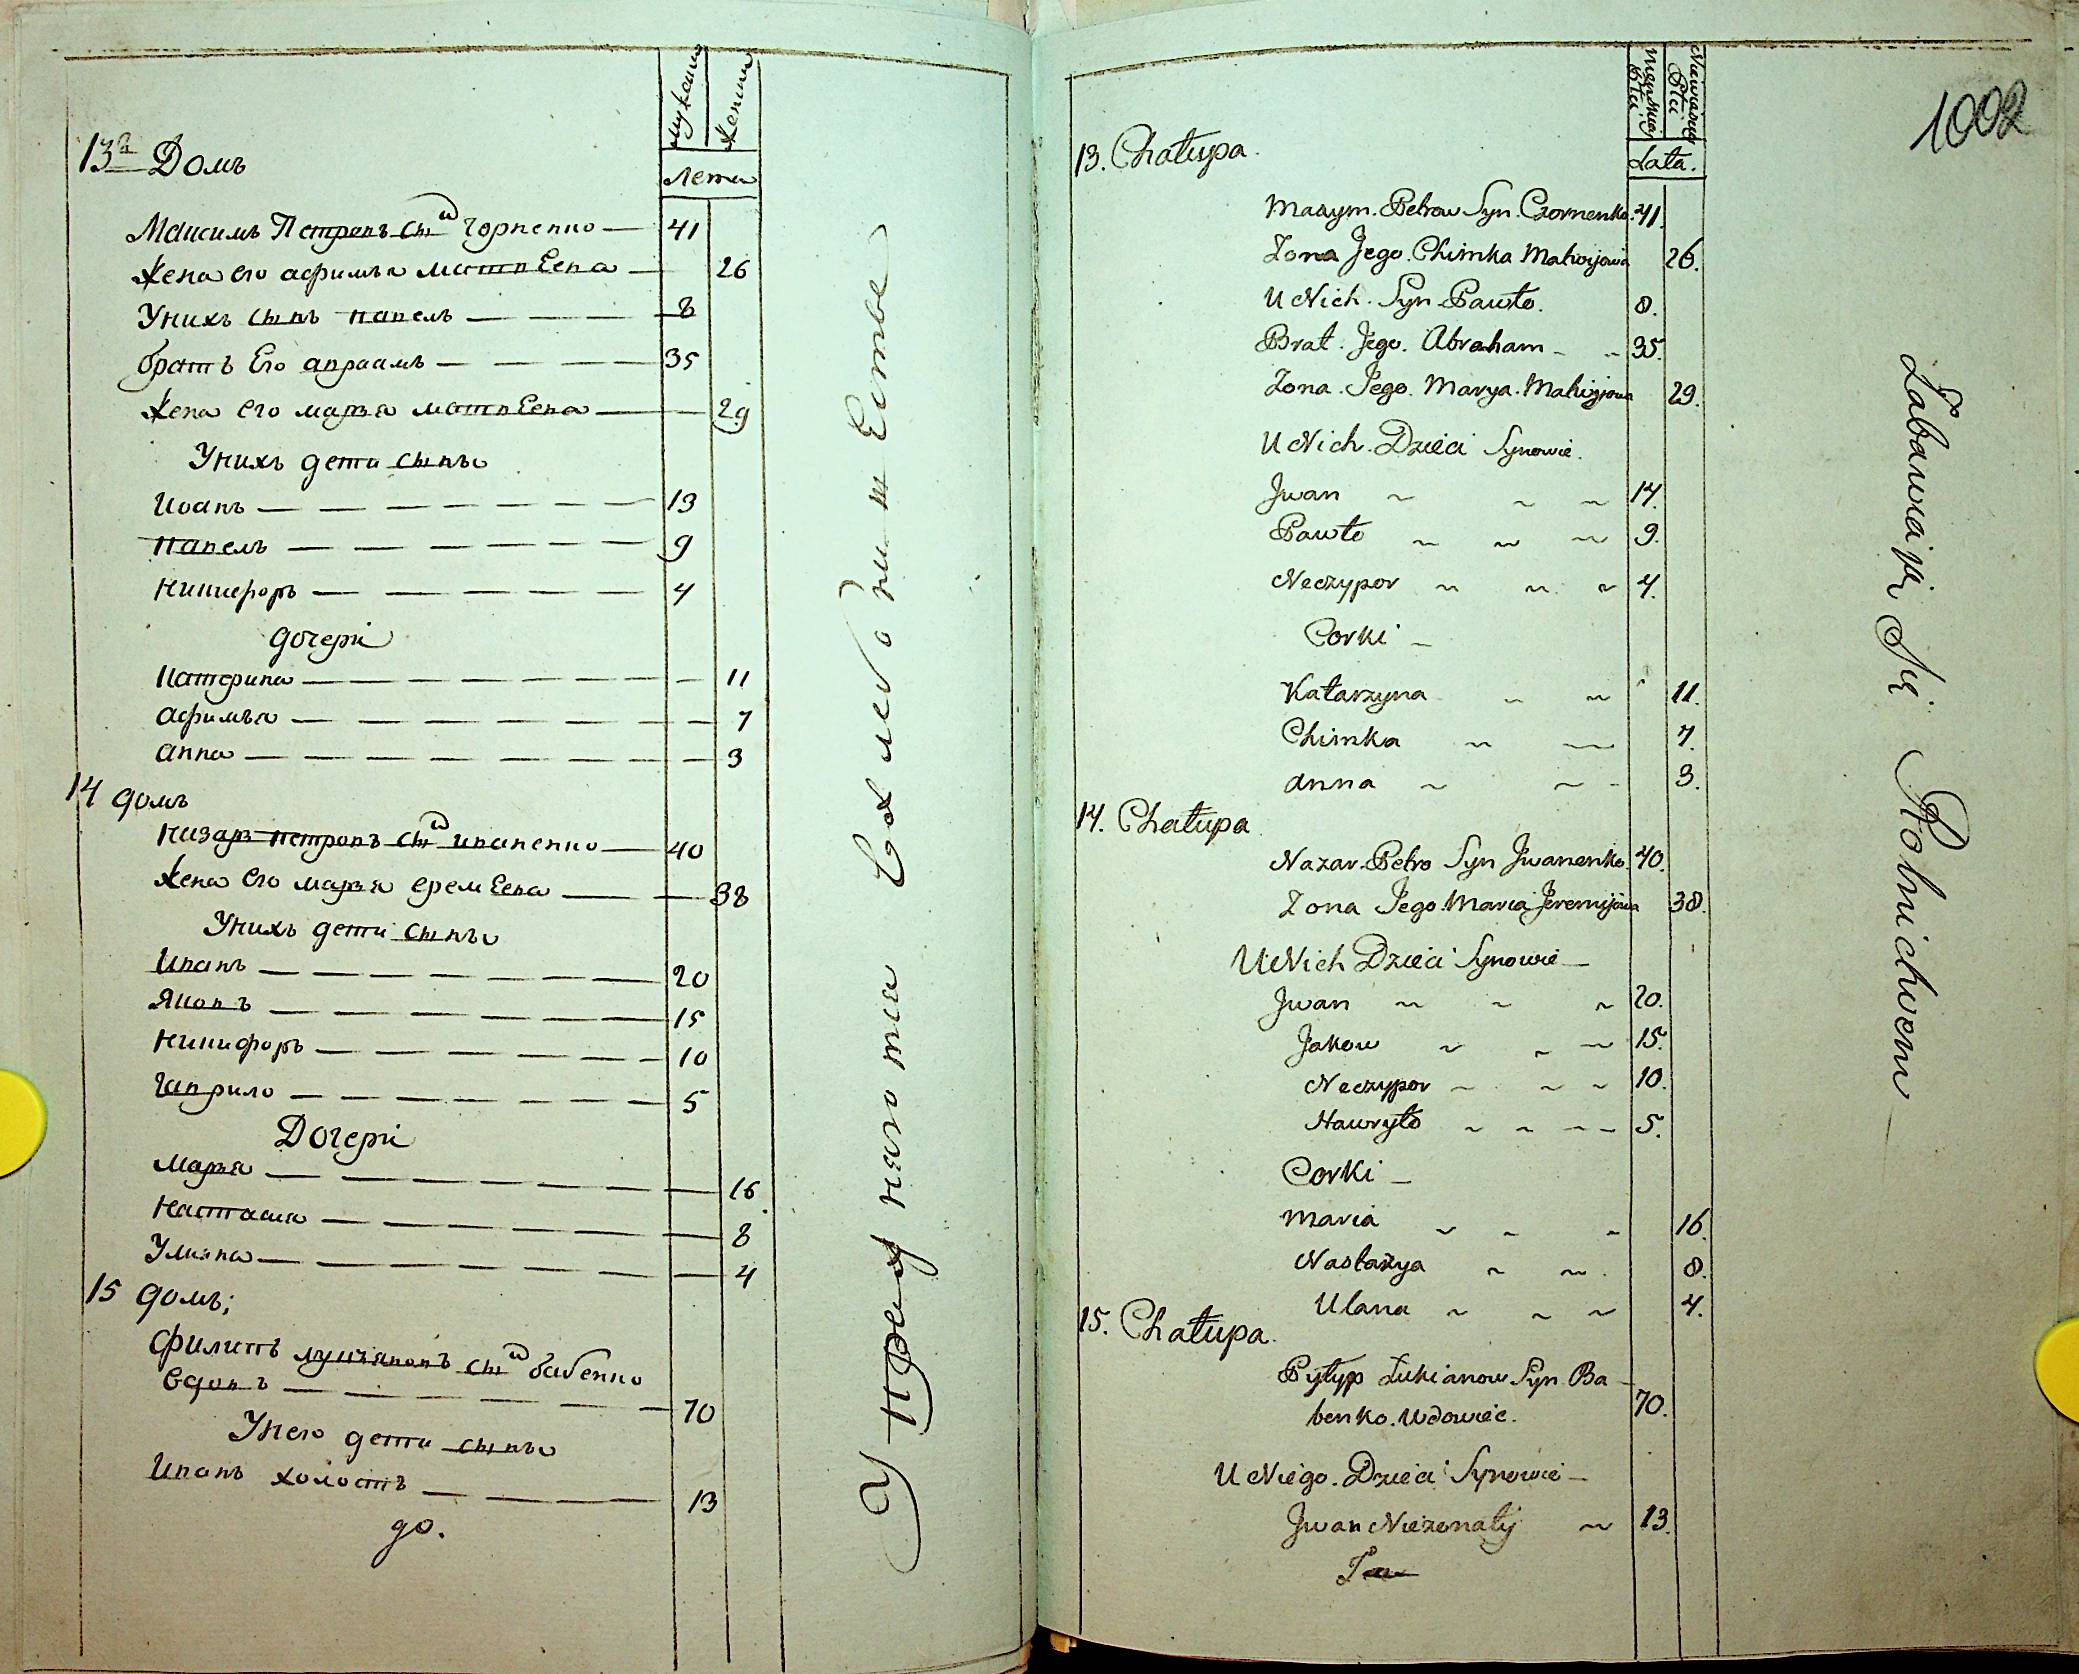 мужеска
женска
лета
13й Домъ
Максимъ Петровъ сы͠н чорненко — 41
жена его афимья матвѣева — 26
Унихъ сынъ павелъ — 8
братъ Его авраамъ — 35
жена его марья матвѣева — 29
Унихъ дети сынъи
Иванъ — 13
павелъ — 9
никифоръ — 4
дочери
Катерина — 11
афимья — 7
анна — 3
14 домъ
назаръ петровъ сы͠н иваненко — 40
жена Его марья еремѣева — 38
Унихъ дети сынъи
Иванъ — 20
Яковъ — 15
никифоръ — 10
гаврило — 5
Дочери
марья — 16
настасия — 8
Улияна — 4
15 домъ;
филипъ лукъяновъ сы͠н бабенко
вдовъ — 70
Унего дети сынъи
Иванъ холостъ — 13
до.
Упражняютца Хлебопашествомъ
1002
Męskiej Płci
Niewieściej Płci
Lata.
13. Chałupa.
Maxym. Petrow Syn. Czornenko. 41.
Zona Jego. Chimka Matwijowa 26.
U Nich. Syn. Pawło. 8.
Brat. Jego. Abraham 35.
Zona. Jego. Marya. Matwijowa 29.
U Nich. Dzieci Synowie.
Jwan 14.
Pawło 9.
Neczypor 4.
Corki
Katarzyna 11.
Chimka 7.
Anna 3.
14. Chałupa
Nazar. Petro Syn Jwanenko. 40.
Zona Jego. Maria Jeremijowa 38.
U Nich Dzieci Synowie
Jwan 20.
Jakow 15.
Neczypor 10.
Hawryło 5.
Corki
Maria 16.
Nastazya 8.
Ulana 4.
15. Chałupa.
Pyłyp Łukianow Syn Ba
benko. Wdowiec. 70.
U Niego. Dzieci Synowie
Jwan Niezonaty 13.
Zabawiają Się Rolnictwem